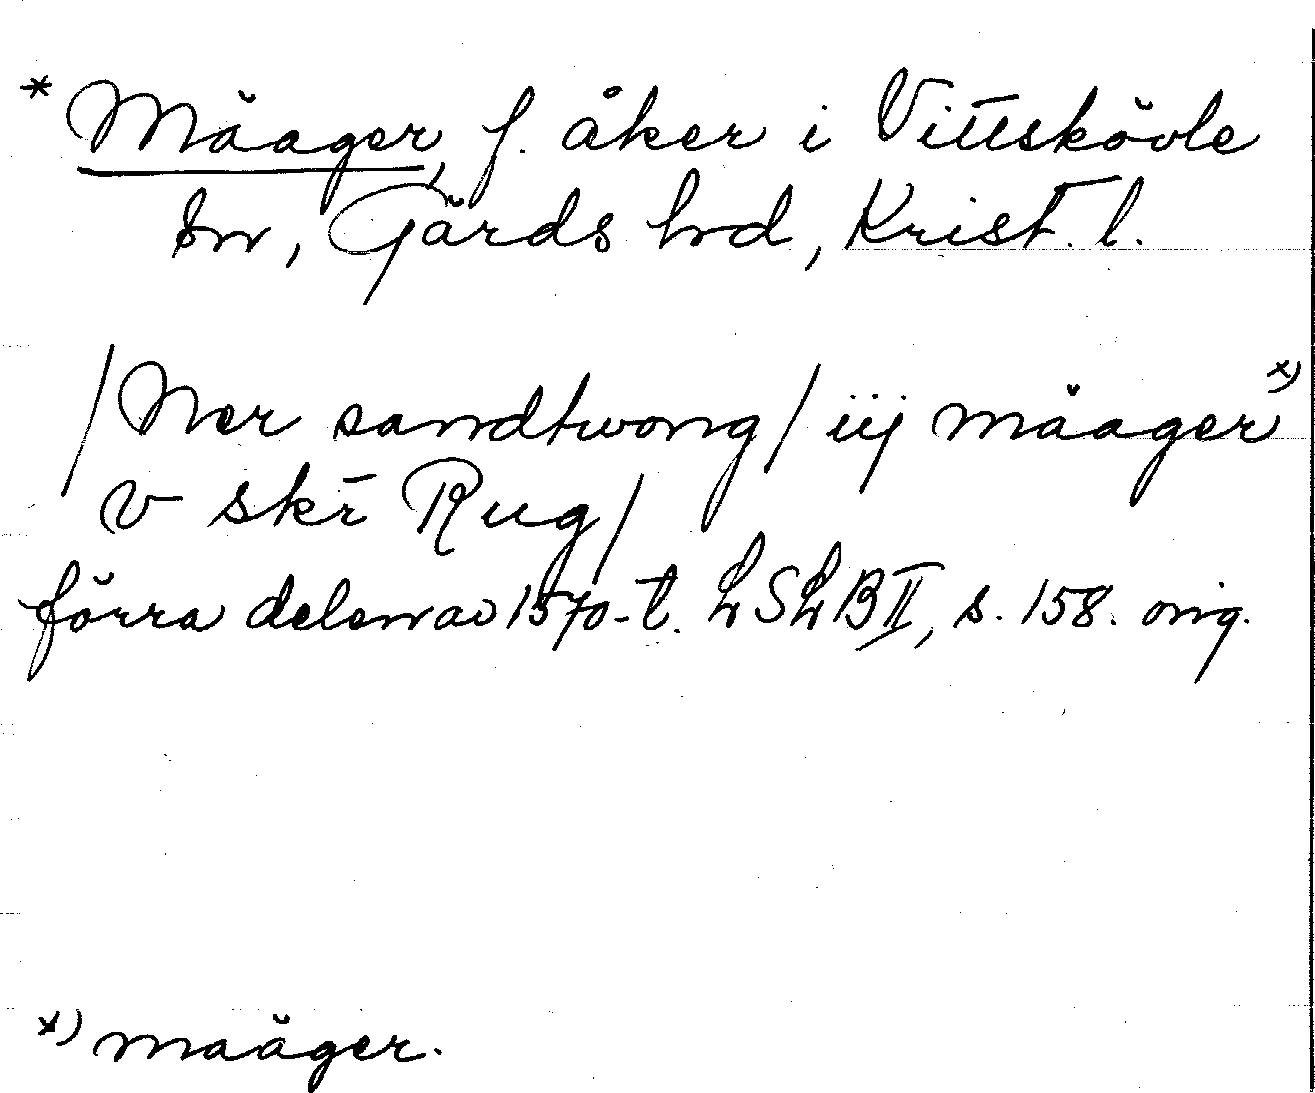 * Måager, f. åker i Vittskövle
sn, Gärds hd, Krist. l.
/Ner sandtwong/ iij måager x)
v skr̄ Rug/
förra delen av 1570-t. LSLB II, s. 158. orig.
x) maåger.